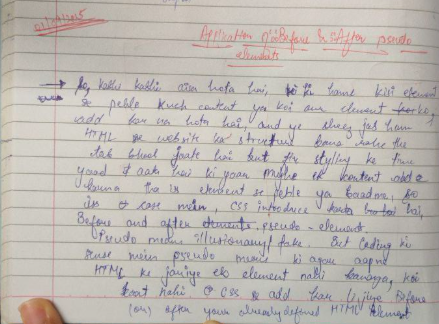 Application of Before & After pseudo
elements
So, kabhi kabhi aisa hota hai, ki hame kisi element
se pehle kuch content ya koi aur element
add karna hota hai, and ye cheez jab ham
HTML se website ka structure bana rahe the
tab bhool jaate hai but fir styling ke time
yaad aata hai ki yaar mujhe ek content add
karna tha is element se pehle ya baad me, So
is case mein, CSS introduce karta hai,
Before and after pseudo-element.
Pseudo means illusionary/fake. But Coding ki
mein pseudo means ki agar aapne
HTML ke jariye ek element nahi banaya, koi
baat nahi. CSS se add kar lijiye Before
(or) after your already defined HTML element